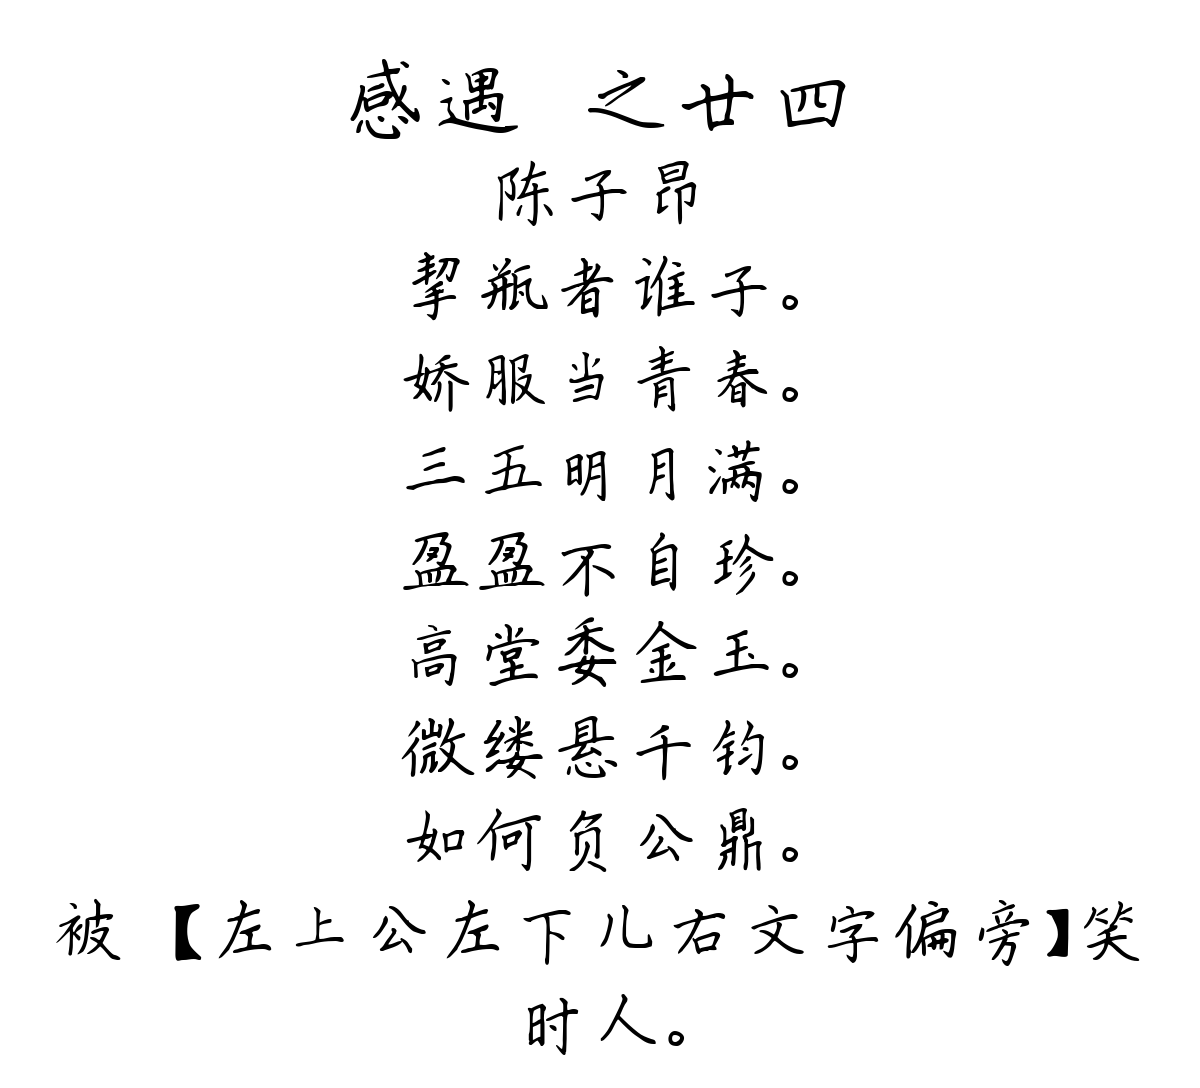 感遇 之廿四
陈子昂
挈瓶者谁子。
娇服当青春。
三五明月满。
盈盈不自珍。
高堂委金玉。
微缕悬千钧。
如何负公鼎。
被【左上公左下儿右文字偏旁】笑
时人。